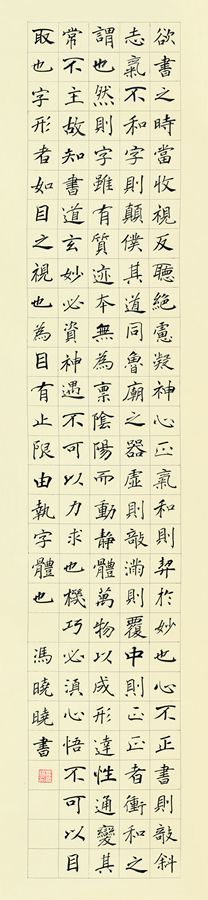 欲書之時當收視反聽絕慮凝神心正氣和則契於妙也心不正書則敧斜
志氣不和字則顛僕其道同魯廟之器虛則敧滿則覆中則正正者衝和之
謂也然則字雖有質迹本無為稟陰陽而動靜體萬物以成形達性通變其
常不主故知書道玄妙必資神遇不可以力求也機巧必湏心悟不可以目
取也字形者如目之視也為目有止限由執字體也 馮曉曉書